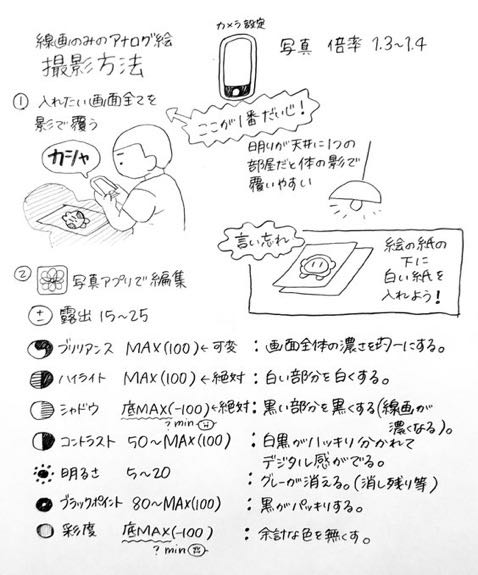 線画のみのアナログ絵
撮影方法
カメラ設定
写真 倍率 1.3~1.4
① 入れたい画面全てを
影で覆う
ここが1番だいじ!
カシャ
明りが天井に1つの
部屋だと体の影で
覆いやすい
言い忘れ
絵の紙の
下に
白い紙を
入れよう!
② 写真アプリで編集
± 露出 15~25
ブリリアンス MAX(100)←可変 : 画面全体の濃さを均一にする。
ハイライト MAX(100)←絶対 : 白い部分を白くする。
シャドウ 底MAX(-100)←絶対 : 黒い部分を黒くする(線画が
濃くなる)。
?min
コントラスト 50~MAX(100) : 白黒がハッキリ分かれて
デジタル感がでる。
明るさ 5~20 : グレーが消える。(消し残り等)
ブラックポイント 80~MAX(100) : 黒がパッキリする。
彩度 底MAX(-100) : 余計な色を無くす。
?min